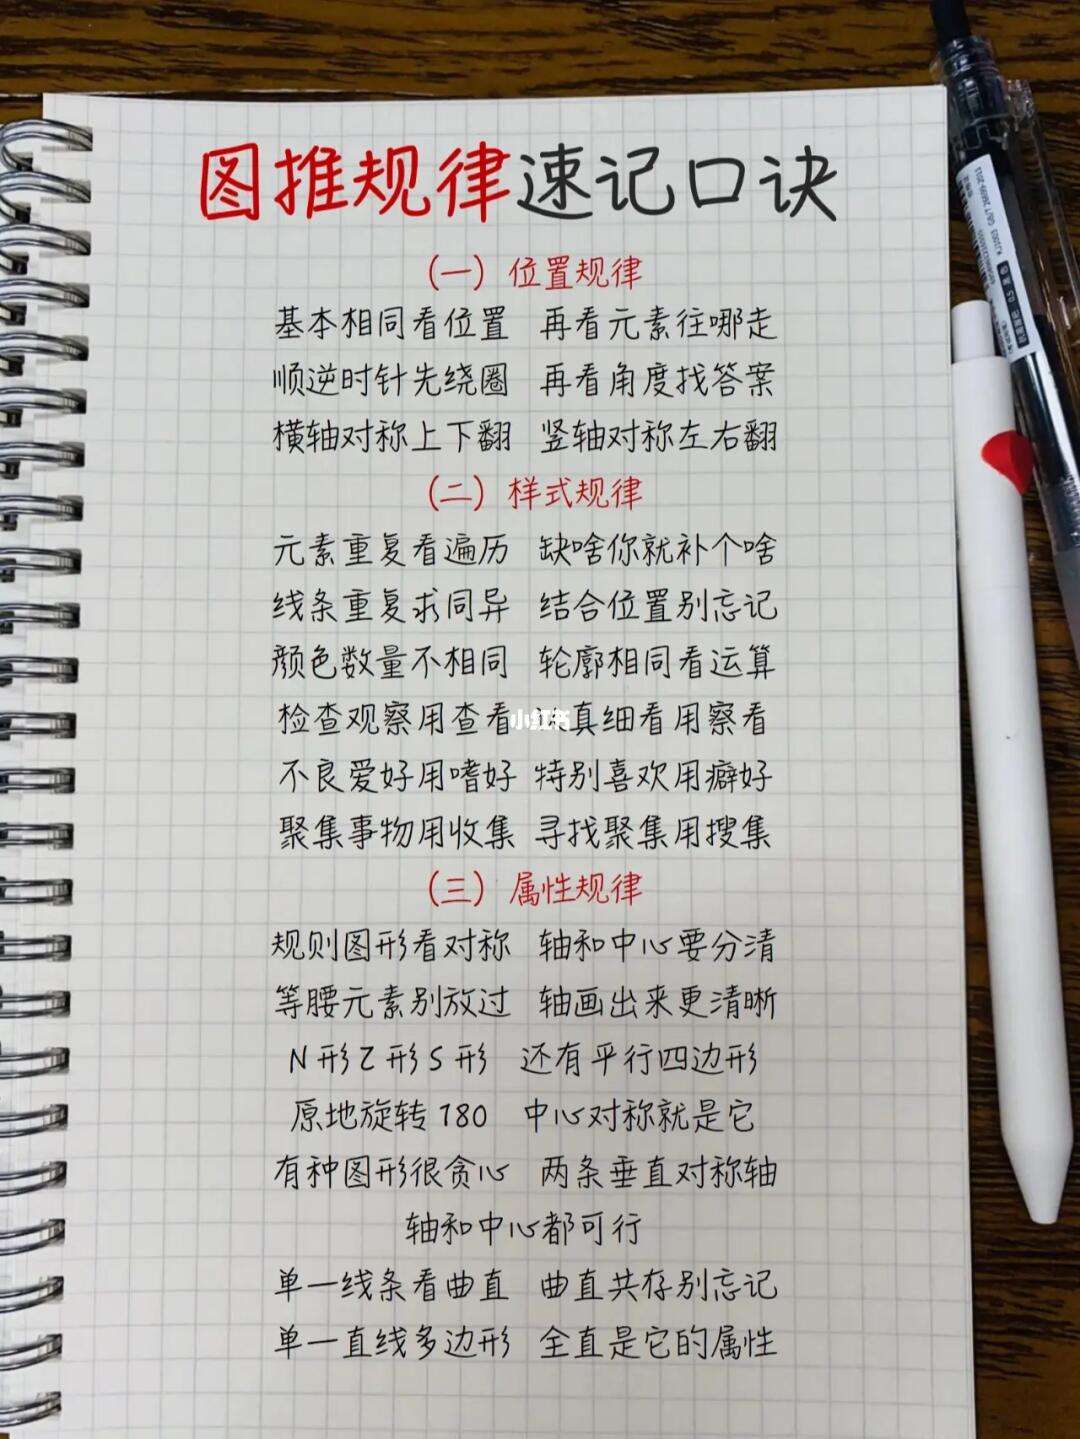 图推规律速记口诀
（一）位置规律
基本相同看位置 再看元素往哪走
顺逆时针先绕圈 再看角度找答案
横轴对称上下翻 竖轴对称左右翻
（二）样式规律
元素重复看遍历 缺啥你就补个啥
线条重复求同异 结合位置别忘记
颜色数量不相同 轮廓相同看运算
检查观察用查看 真细看用察看
小红书
不良爱好用嗜好 特别喜欢用癖好
聚集事物用收集 寻找聚集用搜集
（三）属性规律
规则图形看对称 轴和中心要分清
等腰元素别放过 轴画出来更清晰
N形Z形S形 还有平行四边形
原地旋转180 中心对称就是它
有种图形很贪心 两条垂直对称轴
轴和中心都可行
单一线条看曲直 曲直共存别忘记
单一直线多边形 全直是它的属性